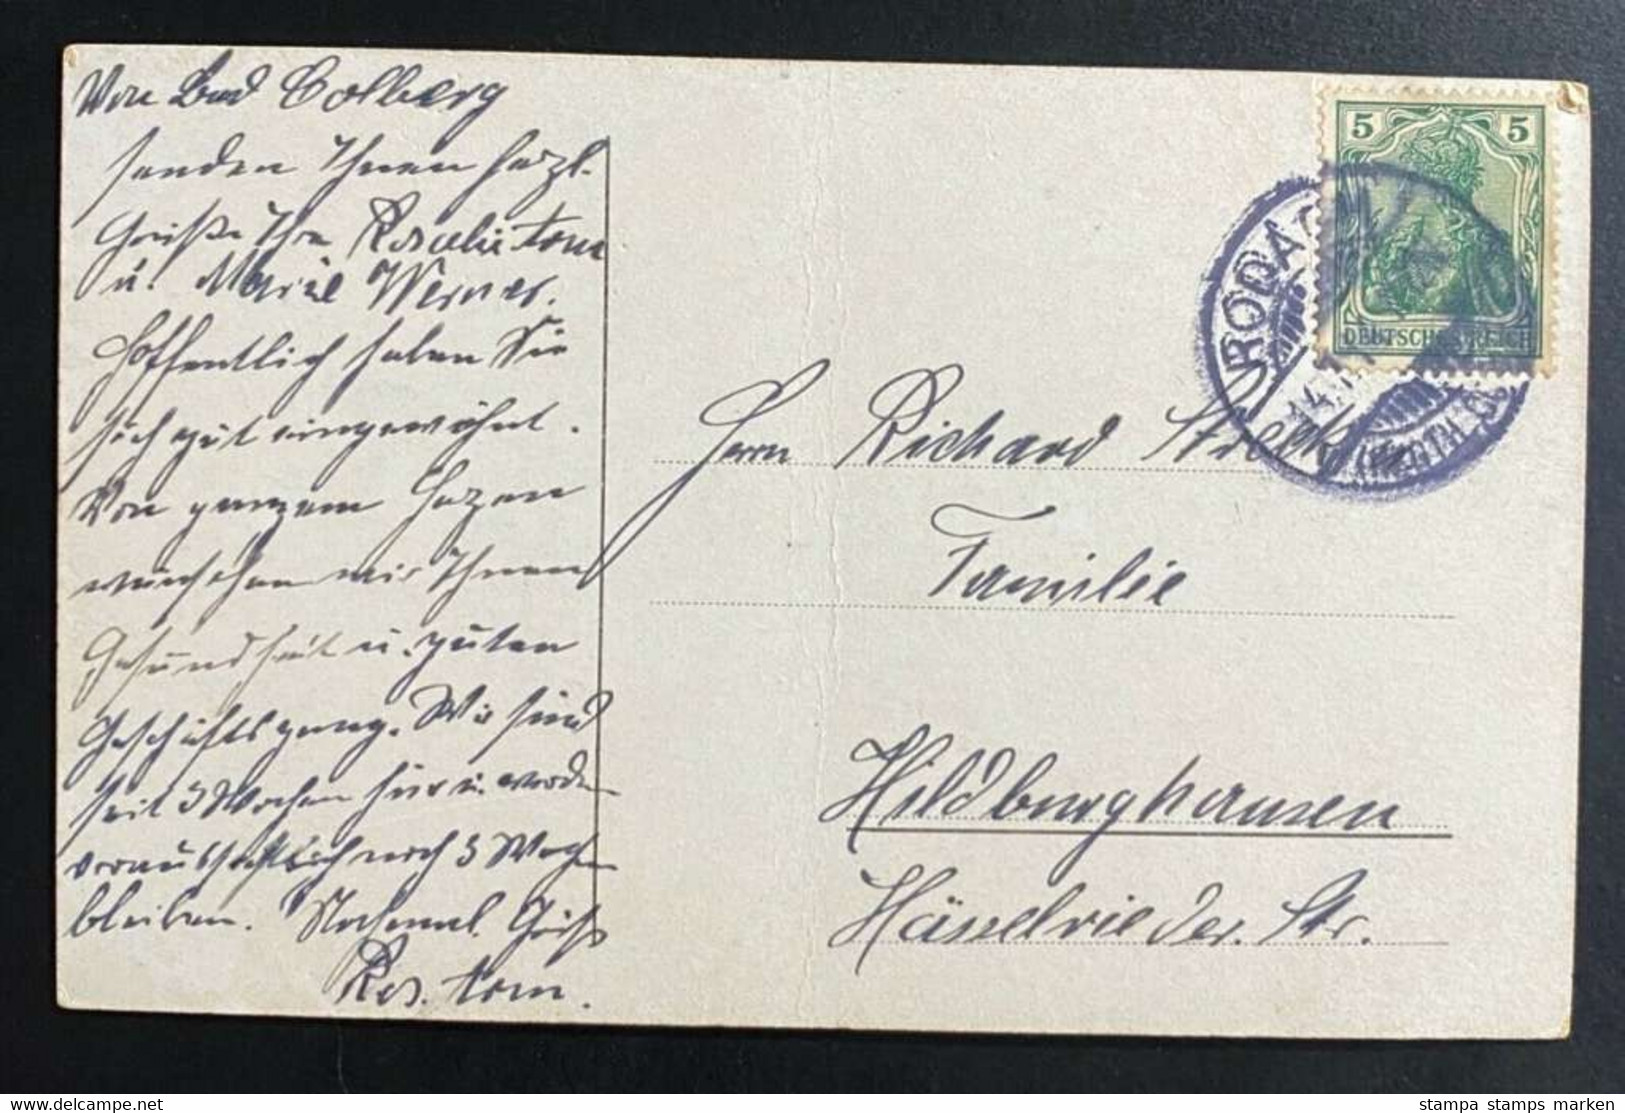 Von Bad Colberg
senden Ihnen herzl.
Grüße Ihre Rosalie
u. Marie Werner.
Hoffentlich haben Sie
sich gut eingewöhnt.
Von ganzem Herzen
wünschen wir Ihnen
Gesundheit u. guten
Geschäftsgang. Wir sind
seit 3 Wochen hier u. werden
voraussichtlich noch 3 Wochen
bleiben. Nochmal. Grüße
Ros.
5 5
DEUTSCHES REICH
RODACH
14
Herrn Richard Streck
Familie
Hildburghausen
Häselrieder. Str.
stampa stamps marken